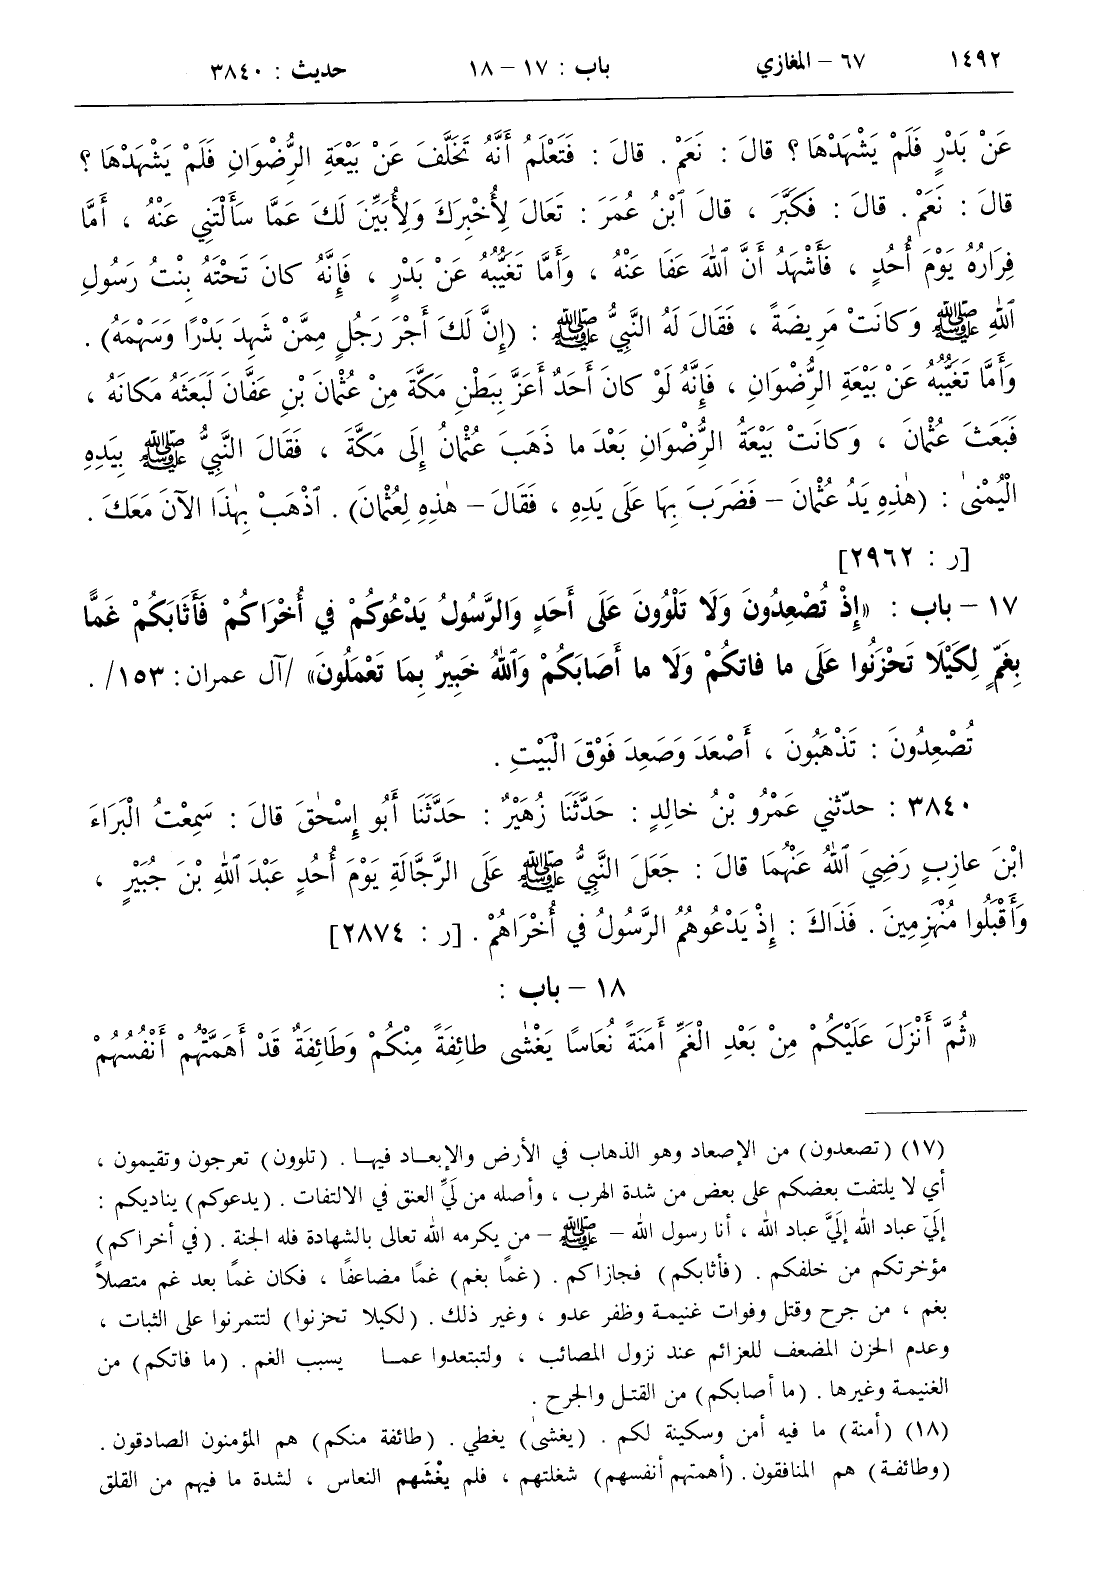 ١٤٩٢ ٦٧ - المغازي باب : ١٧ - ١٨ حديث : ٣٨٤٠
عَنْ بَدْرٍ فَلَمْ يَشْهَدْهَا ؟ قالَ : نَعَمْ . قالَ : فَتَعْلَمُ أَنَّهُ تَخَلَّفَ عَنْ بَيْعَةِ الرُّضْوَانِ فَلَمْ يَشْهَدْهَا ؟
قالَ : نَعَمْ . قالَ : فَكَبَّرَ ، قالَ ٱبْنُ عُمَرَ : تَعَالَ لِأُخْبِرَكَ وَلِأُبَيِّنَ لَكَ عَمَّا سَأَلْتَنِي عَنْهُ ، أَمَّا
فِرَارُهُ يَوْمَ أُحُدٍ ، فَأَشْهَدُ أَنَّ ٱللهَ عَفَا عَنْهُ ، وَأَمَّا تَغَيُّبُهُ عَنْ بَدْرٍ ، فَإِنَّهُ كانَ تَحْتَهُ بِنْتُ رَسُولِ
ٱللهِ ﷺ وَكانَتْ مَرِيضَةً ، فَقَالَ لَهُ النَّبِيُّ ﷺ : (إِنَّ لَكَ أَجْرَ رَجُلٍ مِمَّنْ شَهِدَ بَدْرًا وَسَهْمَهُ) .
وَأَمَّا تَغَيُّبُهُ عَنْ بَيْعَةِ الرُّضْوَانِ ، فَإِنَّهُ لَوْ كانَ أَحَدٌ أَعَزَّ بِبَطْنِ مَكَّةَ مِنْ عُثْمانَ بْنِ عَفَّانَ لَبَعَثَهُ مَكانَهُ ،
فَبَعَثَ عُثْمانَ ، وَكانَتْ بَيْعَةُ الرُّضْوَانِ بَعْدَ ما ذَهَبَ عُثْمانُ إِلَى مَكَّةَ ، فَقَالَ النَّبِيُّ ﷺ بِيَدِهِ
الْيُمْنىٰ : (هٰذِهِ يَدُ عُثْمانَ - فَضَرَبَ بِهَا عَلَى يَدِهِ ، فَقَالَ - هٰذِهِ لِعُثْمانَ) . ٱذْهَبْ بِهٰذَا الآنَ مَعَكَ .
[ر : ٢٩٦٢]
١٧ - باب : «إِذْ تُصْعِدُونَ وَلَا تَلْوُونَ عَلَى أَحَدٍ وَالرَّسُولُ يَدْعُوكُمْ فِي أُخْرَاكُمْ فَأَثَابَكُمْ غَمًّا
بِغَمٍّ لِكَيْلَا تَحْزَنُوا عَلَى ما فاتَكُمْ وَلَا ما أَصَابَكُمْ وَٱللهُ خَبِيرٌ بِمَا تَعْمَلُونَ» /آل عمران : ١٥٣/ .
تُصْعِدُونَ : تَذْهَبُونَ ، أَصْعَدَ وَصَعِدَ فَوْقَ الْبَيْتِ .
٣٨٤٠ : حدّثني عَمْرُو بْنُ خالِدٍ : حَدَّثَنَا زُهَيْرٌ : حَدَّثَنَا أَبُو إِسْحٰقَ قالَ : سَمِعْتُ الْبَرَاءَ
ابْنَ عازِبٍ رَضِيَ ٱللهُ عَنْهُمَا قالَ : جَعَلَ النَّبِيُّ ﷺ عَلَى الرَّجَّالَةِ يَوْمَ أُحُدٍ عَبْدَ ٱللهِ بْنَ جُبَيْرٍ ،
وَأَقْبَلُوا مُنْهَزِمِينَ . فَذَاكَ : إِذْ يَدْعُوهُمُ الرَّسُولُ فِي أُخْرَاهُمْ . [ر : ٢٨٧٤]
١٨ - باب :
«ثُمَّ أَنْزَلَ عَلَيْكُمْ مِنْ بَعْدِ الْغَمِّ أَمَنَةً نُعَاسًا يَغْشٰى طائِفَةً مِنْكُمْ وَطَائِفَةٌ قَدْ أَهَمَّتْهُمْ أَنْفُسُهُمْ
(١٧) (تصعدون) من الإصعاد وهو الذهاب في الأرض والإبعاد فيها . (تلوون) تعرجون وتقيمون ،
أي لا يلتفت بعضكم على بعض من شدة الهرب ، وأصله من لَيِّ العنق في الالتفات . (يدعوكم) يناديكم :
إليَّ عباد الله إليَّ عباد الله ، أنا رسول الله - ﷺ - من يكرمه الله تعالى بالشهادة فله الجنة . (في أخراكم)
مؤخرتكم من خلفكم . (فأثابكم) فجازاكم . (غمًا بغم) غمًا مضاعفًا ، فكان غمًا بعد غم متصلاً
بغم ، من جرح وقتل وفوات غنيمة وظفر عدو ، وغير ذلك . (لكيلا تحزنوا) لتتمرنوا على الثبات ،
وعدم الحزن المضعف للعزائم عند نزول المصائب ، ولتبتعدوا عما يسبب الغم . (ما فاتكم) من
الغنيمة وغيرها . (ما أصابكم) من القتل والجرح .
(١٨) (أمنة) ما فيه أمن وسكينة لكم . (يغشىٰ) يغطي . (طائفة منكم) هم المؤمنون الصادقون .
(وطائفة) هم المنافقون . (أهمتهم أنفسهم) شغلتهم ، فلم يغْشَهم النعاس ، لشدة ما فيهم من القلق